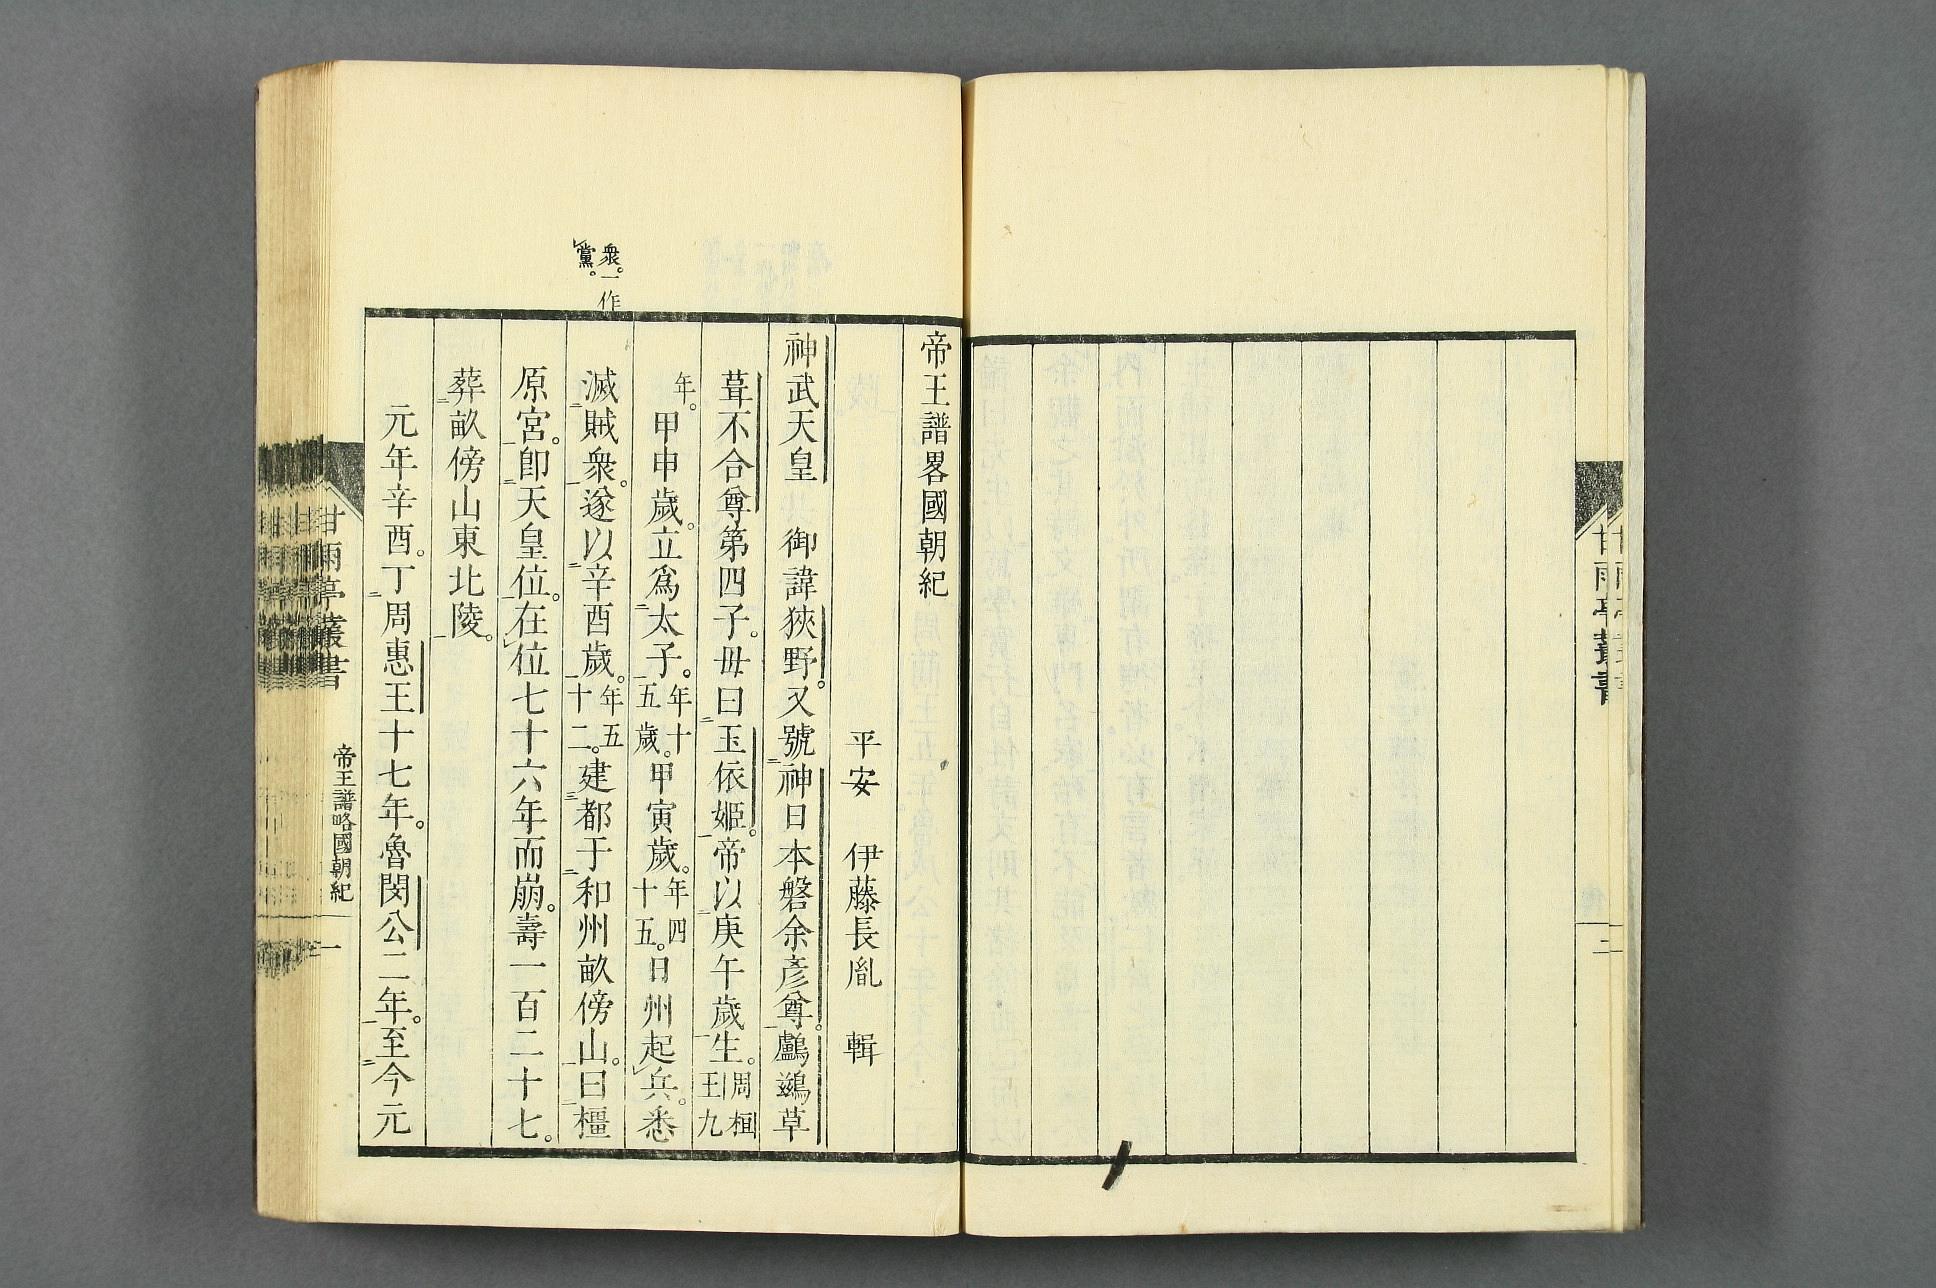 甘雨亭叢書
二
帝王譜畧國朝紀
平安 伊藤長胤 輯
神武天皇 御諱狹野。又號神日本磐余彥尊。鸕鷀草
葺不合尊第四子。毋曰玉依姬。帝以庚午歲生。周桓王九
年。甲申歲。立爲太子。年十五歲。甲寅歲。年四十五。日州起兵。悉
滅賊衆。遂以辛酉歲。年五十二。建都于和州畝傍山。曰橿
原宮。卽天皇位。在位七十六年而崩。壽一百二十七。
葬畝傍山東北陵。
元年辛酉。丁周惠王十七年。魯閔公二年。至今元
衆。一作
黨。
甘雨亭叢書
帝王譜略國朝紀
一